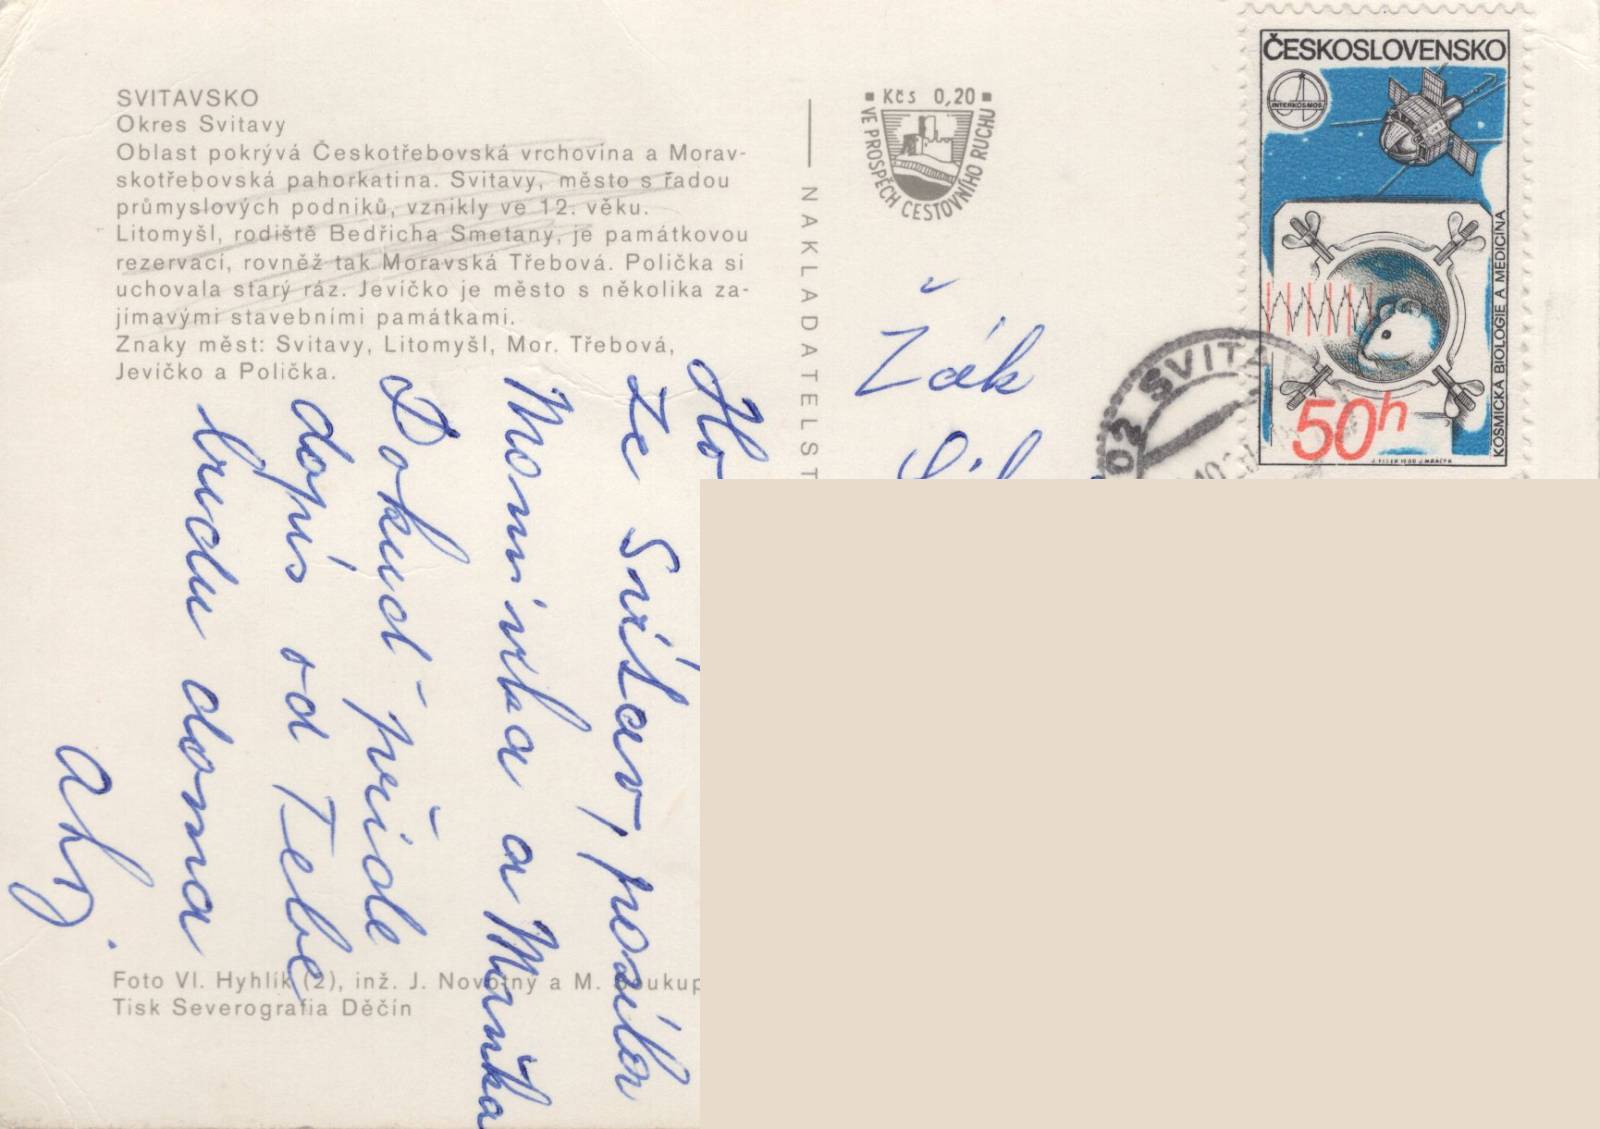 SVITAVSKO
Okres Svitavy
Oblast pokrývá Českotřebovská vrchovina a Morav-
skotřebovská pahorkatina. Svitavy, město s řadou
průmyslových podniků, vznikly ve 12. věku.
Litomyšl, rodiště Bedřicha Smetany, je památkovou
rezervací, rovněž tak Moravská Třebová. Polička si
uchovala starý ráz. Jevíčko je město s několika za-
jímavými stavebními památkami.
Znaky měst: Svitavy, Litomyšl, Mor. Třebová,
Jevíčko a Polička.
Ho
Ze Svitav posílá
a Mařka
Dokud přijde
dopis od Tebe
budu doma
ahoj.
Foto Vl. Hyhlík (2), inž. J. Novotný a M. Soukup
Tisk Severografia Děčín
NAKLADATELST
Kčs 0,20
VE PROSPĚCH CESTOVNÍHO RUCHU
ČESKOSLOVENSKO
INTERKOSMOS
KOSMICKÁ BIOLOGIE A MEDICÍNA
50h
SVITA
02
Žák